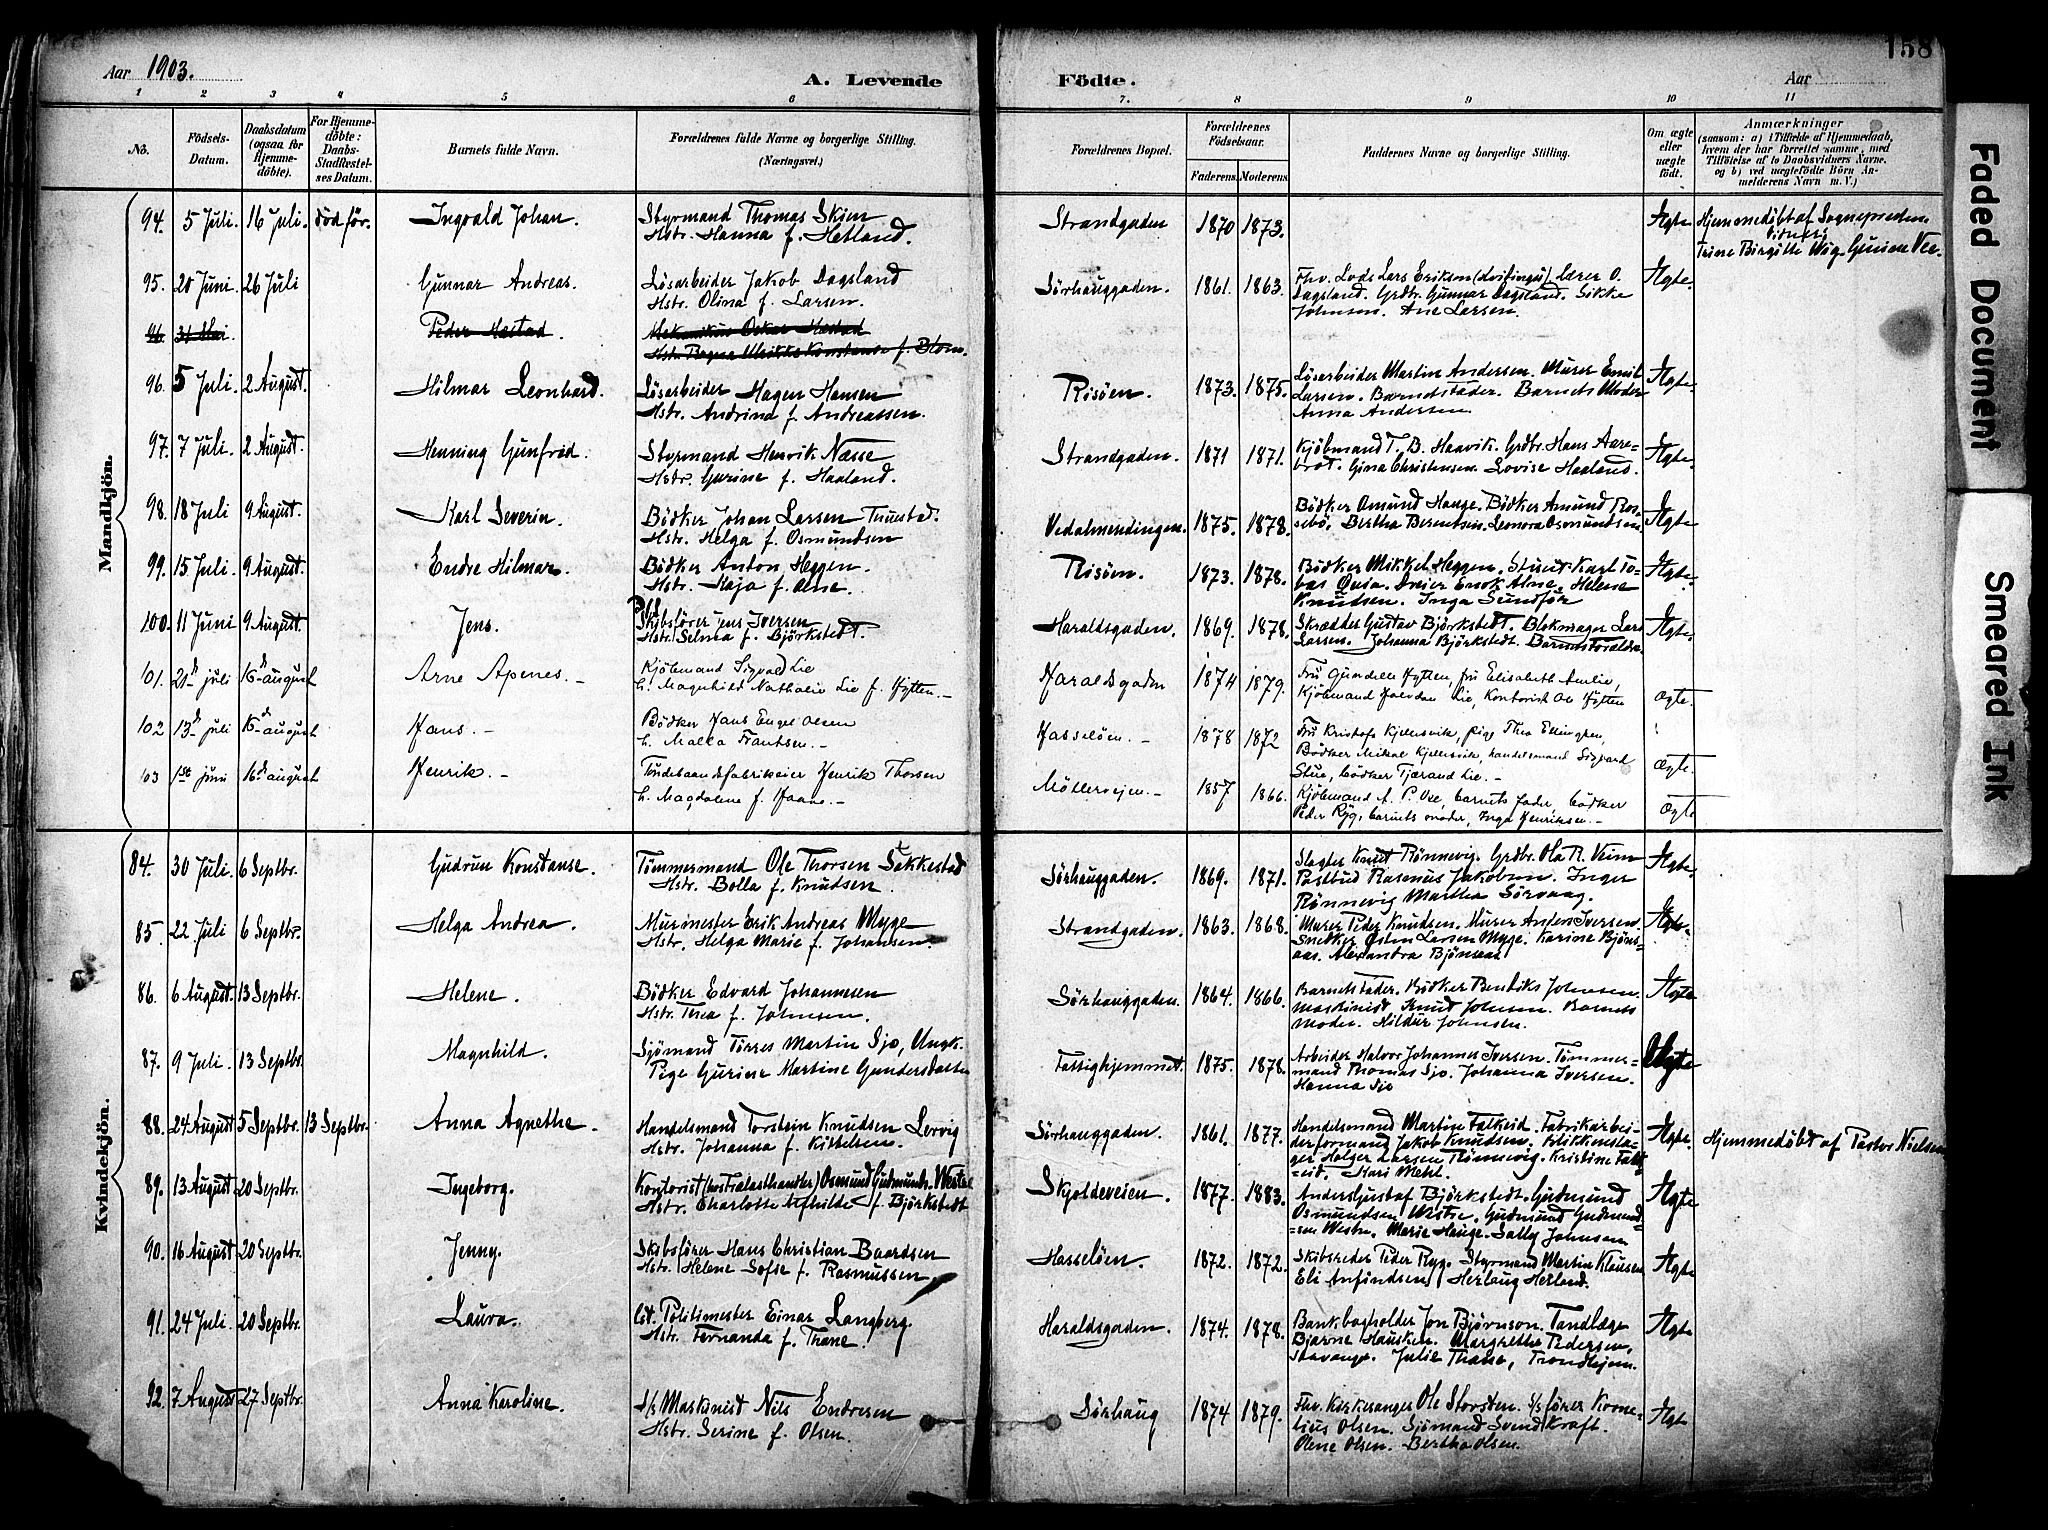 158
Aar 1903.
A. Levende Fødte.
Aar
1 2 3 4 5 6 7. 8 9 10 11
No.
Fødsels-Datum.
Daabsdatum (ogsaa for Hjemmedøbte).
For Hjemmedøbte: Daabs-Stadfæstelses Datum.
Barnets fulde Navn.
Forældrenes fulde Navne og borgerlige Stilling.
(Næringsvei.)
Forældrenes Bopæl.
Forældrenes Fødselsaar.
Faderens. Moderens.
Faddernes Navne og borgerlige Stilling.
Om ægte eller uægte født.
Anmærkninger
(saasom: a) i Tilfælde af Hjemmedaab, hvem der har forrettet samme, med Tilføielse af to Daabsvidners Navne, og b) ved uægtefødte Børn Anmelderens Navn m. V.)
Mandkjön.
94. 5 Juli. 16 Juli. död för. Ingvald Johan. Styrmand Thomas Skjen Strandgaden 1870 1873. Ægte Hjemmedøbt af Sognepresten.
Hstr. Hanna f. Hetland. Vidner:
Trine Birgitte
95. 20 Juni. 26 Juli Gunnar Andreas. Løsarbeider Jakob Dagsland Sörhauggaden. 1861. 1863. Fhv. Lods Lars Eriksen Lærer O. Ægte.
Hstr. Olina f. Larsen. Dagsland. Grdbr. Gunnar Dagsland. Sikke
Johnsen. Ane Larsen.
96. 31 Mai. Peder Hæstad. Mekanikus Oskar Hæstad
Hstr. Konstanse f. Blom.
96. 5 Juli. 2 August. Hilmar Leonhard. Løsarbeider Hagen Hansen Risöen. 1873. 1875. Løsarbeider Martin Andersen. Murer Emil Ægte
Hstr. Andrina f. Andreassen. Larsen. Barnets Fader. Barnets Moder
Anna Andersen
97. 7 Juli. 2 August. Henning Gunfred. Styrmand Henrik Næsse Strandgaden. 1871 1871. Kjöbmand T. B. Haavik. Grdbr. Hans Aare- Ægte.
Hstr. Gurine f. Haaland. brot. Gina Christensen. Lovise Haaland.
98. 18 Juli 9 August. Karl Severin. Bödker Johan Larsen Tuestad. 1875. 1878. Bödker Omund Hauge. Bödker Amund Ros- Ægte
Hstr. Helga f. Osmundsen sebö. Bertha Berentsen. Leonora Osmundsen
99. 15 Juli. 9 August. Endre Hilmar. Bödker Anton Heggen. Risöen. 1873. 1878. Bödker Mikkel Heggen. Karl To- Ægte
Hstr. Kaja f. Helene
Knudsen. Inga Sundför
100. 11 Juni 9 August. Jens. Skibsförer Jens Iversen Haraldsgaden. 1869. 1878. Skrædder Gustav Björkstedt. Blokmager Lars Ægte
Hstr. Selma f. Björkstedt. Larsen. Johanna Björkstedt. Barnets Forældre
101. 21 juli 16 august Arne Apenes. Kjöbmand Sigvad Lie Haraldsgaden 1874 1879. Fru Hytten, fru Elisabeth Amlie,
h. Magnhild Nathalie Lie f. Hytten. Kjöbmand Halvdan Lie, Kontorist Ole Hytten ægte.
102 13 juli 16 august Hans. Bödker Hans Engel Olsen Hasselöen. 1878 1872 Fru Kristofa Kjellesvik, pige Thea Ellingsen,
h. Malla Frantsen. Bödker Mikael Kjellesvik, handelsmand Sigvard
Stue, bödker Tjærand Lie. ægte.
103 1ste juni 16 august Henrik. Tøndebaandsfabrikeier Henrik Thorsen Möllerveien. 1857 1866. Kjöbmand A. P. Vee, barnets fader, bödker
h. Magdalene f. Haane. Peder Ryg, barnets moder, Inga Henriksen. ægte
Kvindekjön.
84. 30 Juli. 6 Septbr. Gudrun Konstanse. Tømmermand Ole Thorsen Sækkestad Sörhauggaden. 1869. 1871. Slagter Knut Rønnevig. Grdbr. Ola R. Veim Ægte.
Hstr. Bolla f. Knudsen. Postbud Rasmus Jakobsen. Inger
Rønnevig Martha Sörvaag.
85. 22 Juli 6 Septbr. Helga Andrea. Murmester Erik Andreas Myge Strandgaden. 1863. 1868. Murer Peder Knudsen. Murer Anders Iversen. Ægte.
Hstr. Helga Marie f. Johansen. Snedker Östen Larsen Myge. Karine Bjöns-
aas. Alexandra Bjönsaas
86. 6 August. 13 Septbr. Helene. Bödker Edvard Johannesen Sörhauggaden. 1864. 1866. Barnets Fader. Bödker Bendiks Johnsen. Ægte
Hstr. Thea f. Johnsen. Maskinist Knud Johnsen. Barnets
Moder. Hildur Johnsen.
87. 9 Juli. 13 Septbr. Magnhild. Sjömand Törres Martin Sjo, Ungk. Fattighjemmet. 1875. 1878. Arbeider Halvor Johannes Iversen. Tømmer- Uægte
Pige Gurine Martine Gundersdatter mand Thomas Sjo. Johanna Iversen.
Hanna Sjo
88. 24 August 5 Septbr. 13 Septbr. Anna Agnethe. Handelsmand Torstein Knudsen Lervig Sörhauggaden. 1861. 1877. Handelsmand Martin Falkeid. Fabrikarbei- Ægte. Hjemmedøbt af Pastor Nielsen
Hstr. Johanna f. Kittelsen. derformand Jakob Knudsen. Blikkensla-
ger Holger Larsen Rønnevig. Kristine Falk-
eid. Kari Mehl.
89. 13 August 20 Septbr. Ingeborg. Kontorist Osmund Gudmunds. Westre Skjoldeveien. 1877. 1883. Anders Gustaf Björkstedt. Gudmund Ægte
Hstr. Charlotte Alfhilde f. Björkstedt Osmundsen Westre. Gudmund Gudmund-
sen Westre. Marie Hauge. Sally Johnsen
90. 16 August 20 Septbr. Jenny. Skibsförer Hans Christian Baardsen Hasselöen. 1872. 1872. Skibsreder Peder Ryg. Styrmand Martin Klausen Ægte
Hstr. Helene Sofie f. Rasmussen Eli Anfindsen. Herlaug Hetland.
91. 24 Juli. 20 Septbr. Laura. Cst. Politimester Einar Langberg. Haraldsgaden. 1874. 1878. Bankbogholder Jon Björnson. Tandlæge Ægte
Hstr. Fernanda f. Thane. Bjarne Hausken. Margrethe Pedersen,
Stavanger. Julie Thane, Trondhjem.
92. 7 August 27 Septbr. Anna Karoline. S/s Maskinist Nils Endresen Sörhaug 1874 1879. Fhv. Kirkesanger Ole Storsten. S/s förer Korne- Ægte
Hstr. Serine f. Olsen. lius Olsen. Sjömand Svend Kraft.
Olene Olsen. Bertha Olsen.
Faded Document
Smeared Ink